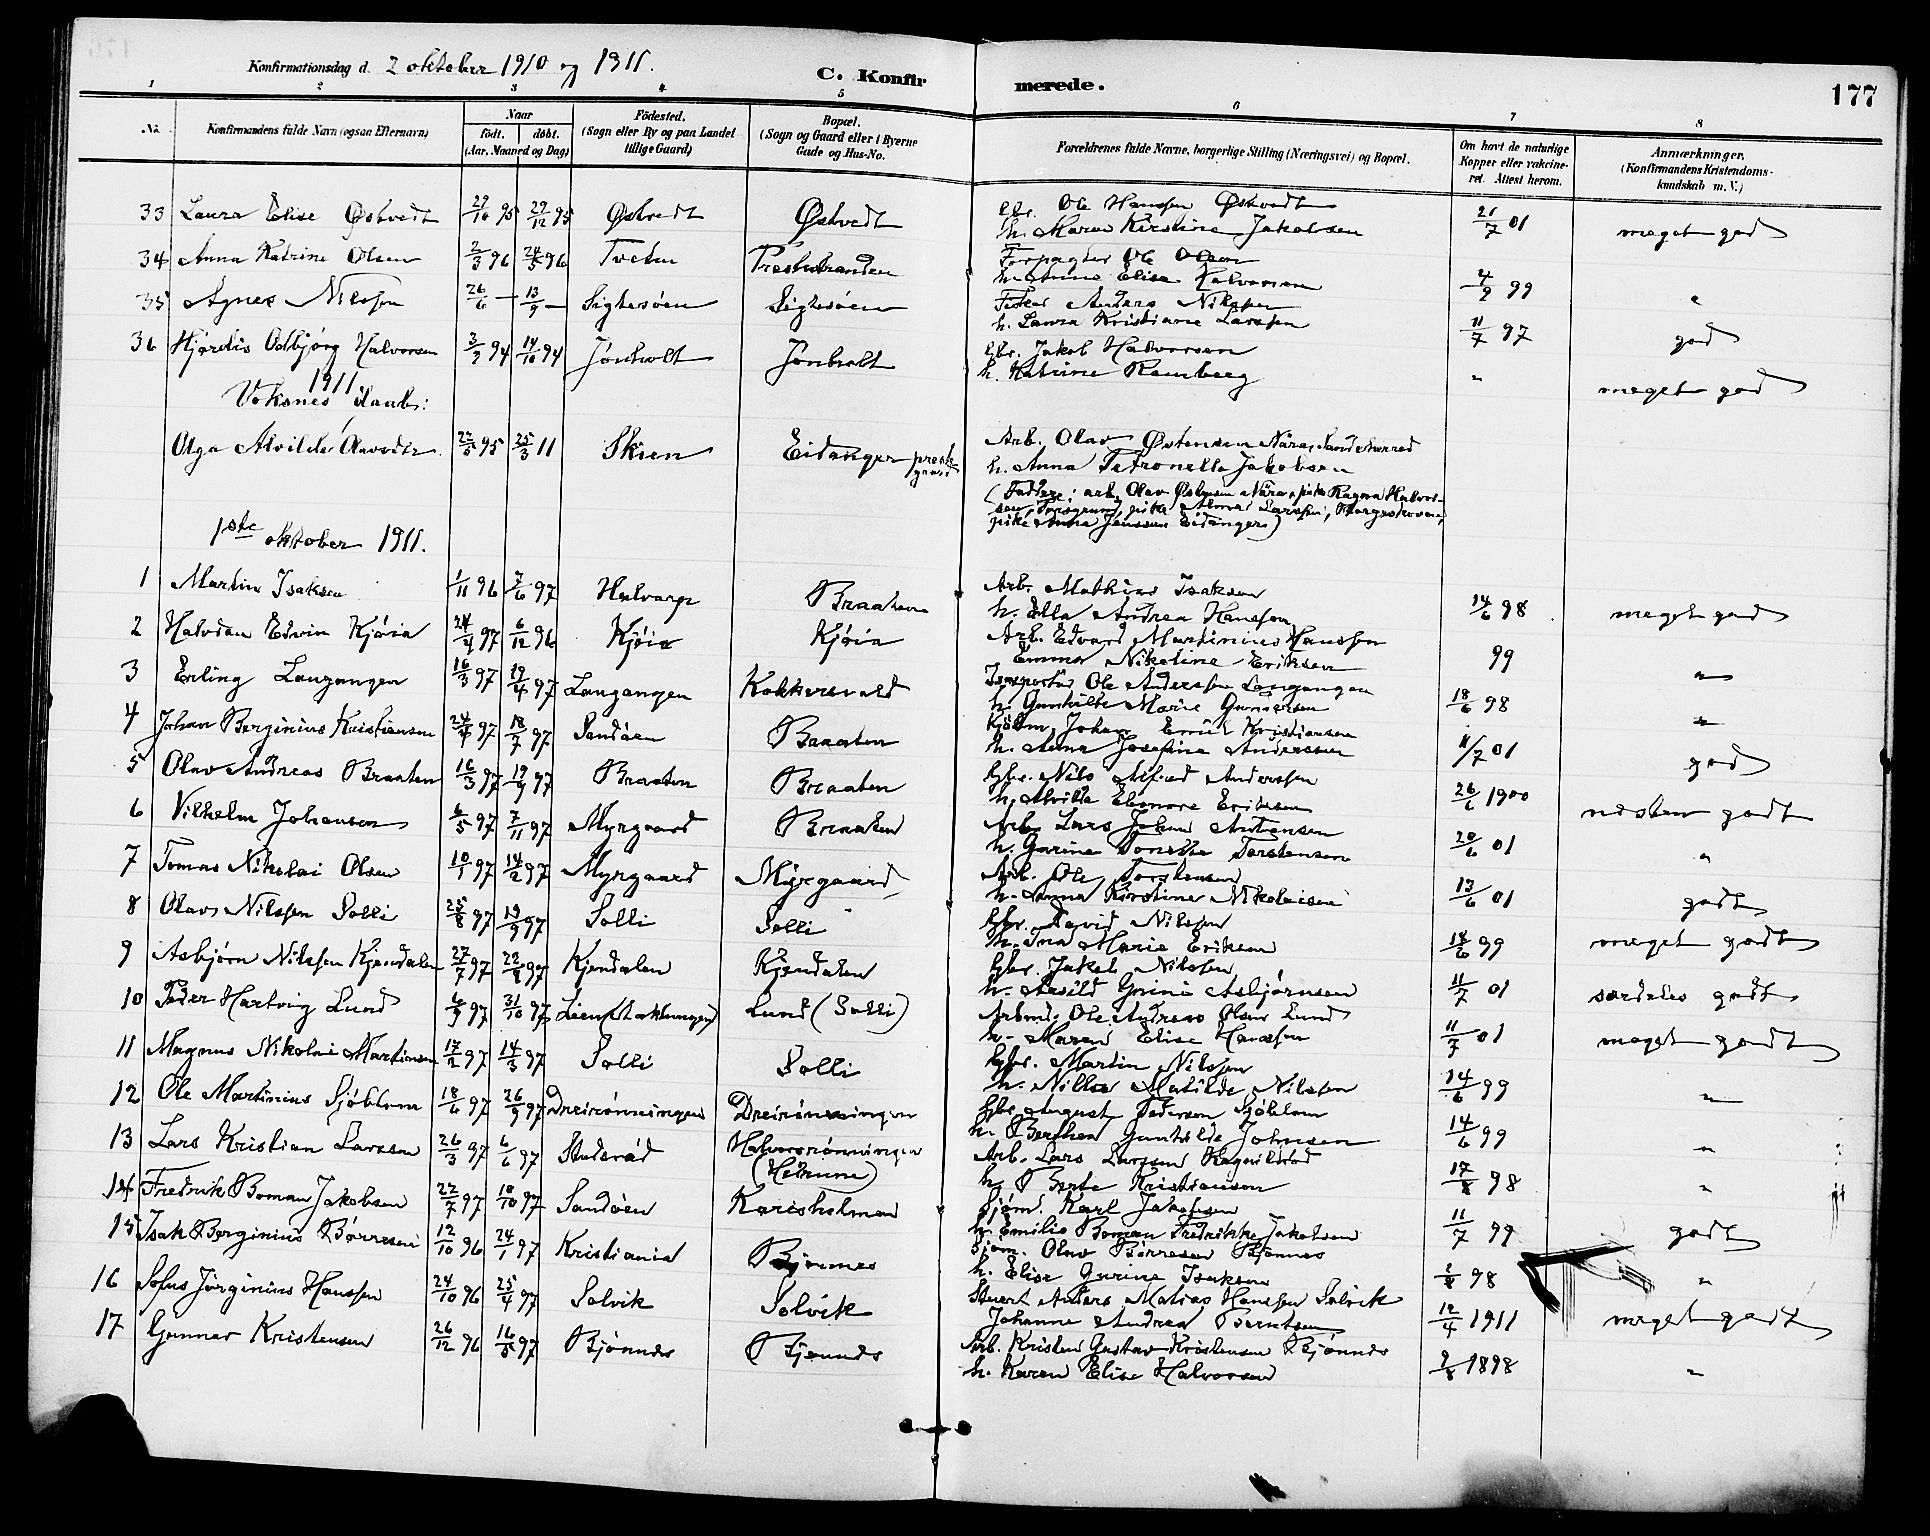 Konfirmationsdag d. 2 oktober 1910 og 1911.
C. Konfirmerede.
177
1 2 3 4 5 6 7 8
No. Konfirmandens fulde Navn (ogsaa Efternavn) Naar født. døbt. (Aar, Maaned og Dag) Fødested. (Sogn eller By og paa Landet tillige Gaard) Bopæl. (Sogn og Gaard eller i Byerne Gade og Hus-No. Forældrenes fulde Navne, borgerlige Stilling (Næringsvei) og Bopæl. Om havt de naturlige Kopper eller vakcineret. Attest herom. Anmærkninger. (Konfirmandens Kristendomskundskab m. V.)
33 Laura Elise Østvedt 29/10 95 29/12 95 Østvedt Østvedt Gbr. Ole Hanssen Østvedt
h. Maren Kirstine Jakobsen 21/7 01 meget god
34 Anna Katrine Olsen 2/3 96 24/5 96 Tveten Prestestranden Forpagter Ole Olsen
h. Anne Elise Halvorsen 4/9 99 "
35 Agnes Nilssen 26/6 — 13/9 — Sigtesøen Sigtesøen Fisker Anders Nilssen
h. Laura Kristiane Larssen 11/7 97 god
36 Hjørdis Odbjørg Halvorsen 3/9 94 14/10 94 Jønholt Jønholt Gbr. Jakob Halvorsen
h. Katrine Ramberg " meget god
1911
Voksnes daab:
Olga Alvilde Olavsdtr. 22/5 95 25/3 11 Skien Eidanger prestegaard Arb. Olav Østensen Nåra, Sandeherred
h. Anna Petronelle Jakobsen
(Faddere: arb. Olav Østensen Nåra, pike Ragna Halvorsen, Porsgrund, pike Alma Larssen,
pike Anna Janssen Eidanger)
1ste oktober 1911.
1 Martin Isaksen 1/11 96 7/6 97 Halvarp Braaten Arb. Mathias Isaksen
h. Ella Andrea Hanssen 14/6 98 meget god
2 Halvdan Edvin Kjøia 24/9 97 6/12 96 Kjøia Kjøia Arb. Edvard Martinius Hanssen
Emma Nikoline Eriksen 99 "
3 Erling Langangen 16/3 97 19/4 97 Langangen Kokkersvold Ole Anderssen Langangen
h. Gunhilde Marie Gunnersen 18/6 98 "
4 Johan Berginius Kristiansen 24/4 97 18/7 97 Sandøen Braaten Kjøbm. Johan Emil Kristiansen
h. Anna Josefine Anderssen 11/7 01 god
5 Olav Andreas Braaten 16/3 97 19/9 97 Braaten Braaten Gbr. Nils Alfred Anderssen
h. Alvilde Elenore Eriksen 26/6 1900 næsten godt
6 Vilhelm Johansen 6/5 97 7/11 97 Myrgaard Braaten Arb. Lars Johan Antonsen
h. Gurine Tonette Torstensen 20/6 01 "
7 Tomas Nikolai Olsen 10/1 97 14/2 97 Myrgaard Myrgaard Arb. Ole Torstensen
h. Anna Kirstine Nikolaisen 13/6 01 godt
8 Olav Nilssen Solli 25/8 97 19/9 97 Solli Solli Gbr. David Nilssen
h. Ina Marie Eriksen 14/6 99 meget godt
9 Asbjørn Nilssen Kjendalen 27/7 97 22/8 97 Kjendalen Kjendalen Gbr. Jakob Nilssen
h. Aasild Gurine Asbjørnsen 11/7 01 særdeles godt
10 Peder Hartvig Lund 6/9 97 31/10 97 Lund (Solli) Arbmd. Ole Andreas Olsen Lund
h. Maren Elise Hanssen 11/7 01 meget godt
11 Magnus Nikolai Martinsen 17/2 97 14/3 97 Solli Solli Gbr. Martin Nilssen
h. Nilla Matilde Nilssen 14/6 99 "
12 Ole Martinius Sjøblom 18/6 97 26/9 97 Dreirønningen Dreirønningen Gbr. August Pedersen Sjøblom
h. Berthea Gunhilde Johnsen 14/6 99 "
13 Lars Kristian Larssen 26/3 97 6/6 97 Stulsrød Halvorsrønningen
(Heistrum) Arb. Lars Larssen
h. Berte Kristiansen 17/8 98 "
14 Fredrik Boman Jakobsen 22/7 97 10/10 97 Sandøen Karisholmen Sjøm. Karl Jakobsen
h. Emilie Boman Fredrikke Jakobsen 11/7 99 godt
15 Isak Berginius Børresen 12/10 96 24/1 97 Kristiania Bjønnes Sjøm. Olav Børresen Bjønnes
h. Elise Gurine Isaksen 98 "
16 Sofus Jørginius Hanssen 24/10 96 25/4 97 Solvik Solvik Stuert Anders Matias Hanssen Solvik
Johanne Andrea Berntsen 12/4 1911 meget godt
17 Gunnar Kristensen 26/12 96 16/5 97 Bjønnes Bjønnes Arb. Kristen Gustav Kristensen Bjønnes
h. Karen Elise Halvorsen 9/8 1898 "